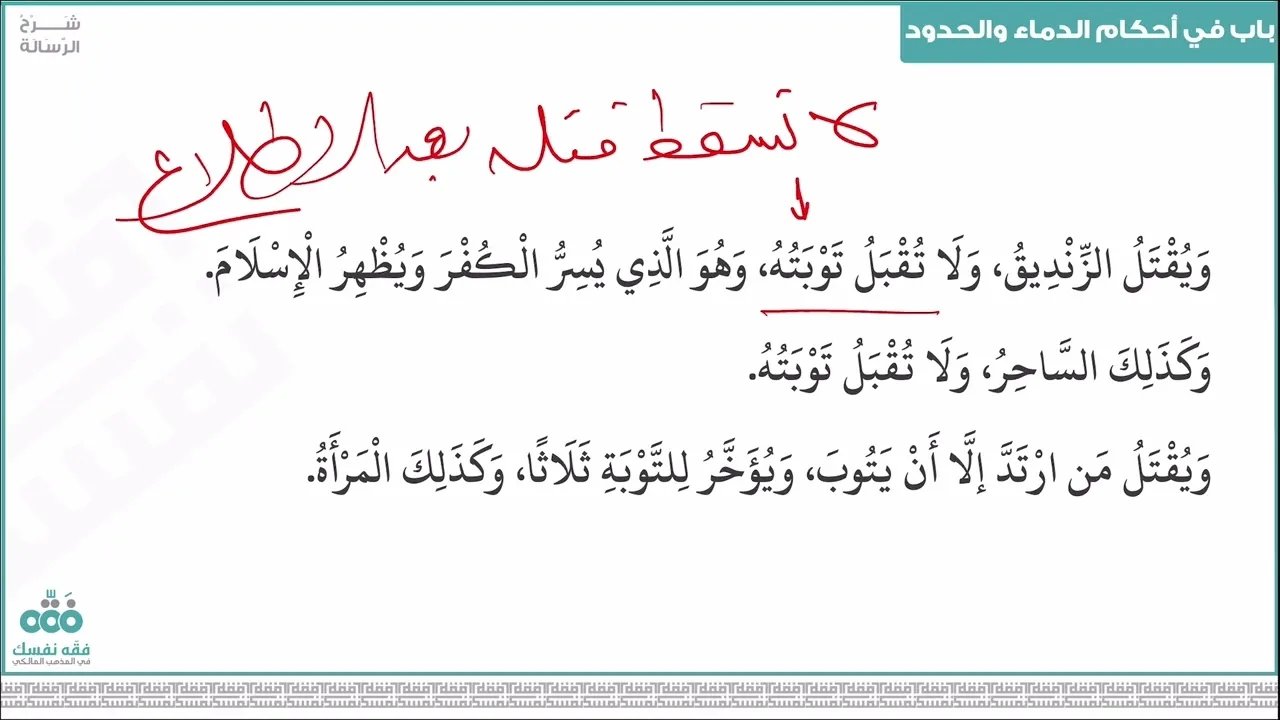 باب في أحكام الدماء والحدود
شرح
الرسالة
لا تسقط قتله بعد الاطلاع
وَيُقْتَلُ الزِّنْدِيقُ، وَلَا تُقْبَلُ تَوْبَتُهُ، وَهُوَ الَّذِي يُسِرُّ الْكُفْرَ وَيُظْهِرُ الْإِسْلَامَ.
وَكَذَلِكَ السَّاحِرُ، وَلَا تُقْبَلُ تَوْبَتُهُ.
وَيُقْتَلُ مَن ارْتَدَّ إلَّا أَنْ يَتُوبَ، وَيُؤَخَّرُ لِلتَّوْبَةِ ثَلَاثًا، وَكَذَلِكَ الْمَرْأَةُ.
فقه نفسك
في المذهب المالكي